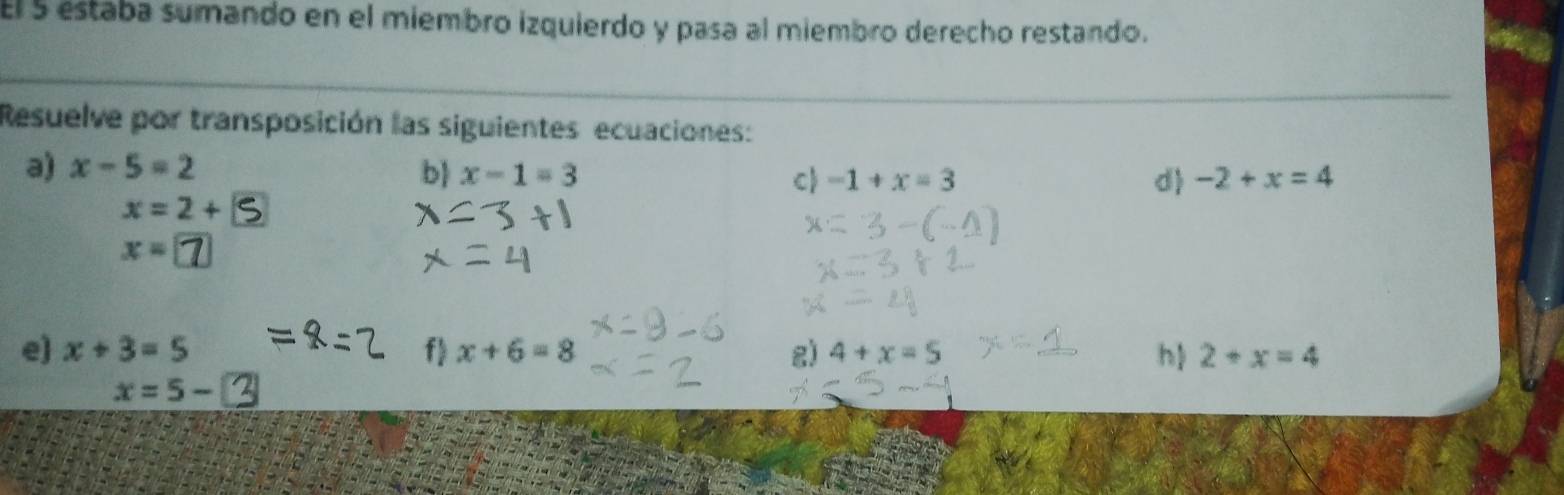 El 5 estaba sumando en el miembro izquierdo y pasa al miembro derecho restando.
Resuelve por transposición las siguientes ecuaciones:
a) x - 5 = 2
x = 2 + 5
x = 7
b) x - 1 = 3
x = 3 + 1
x = 4
c) -1 + x = 3
x = 3 - (-1)
x = 3 + 1
x = 4
d) -2 + x = 4
e) x + 3 = 5 = x = 2
x = 5 - 3
f) x + 6 = 8
x = 8 - 6
x = 2
g) 4 + x = 5 x = 1
x = 5 - 4
h) 2 + x = 4